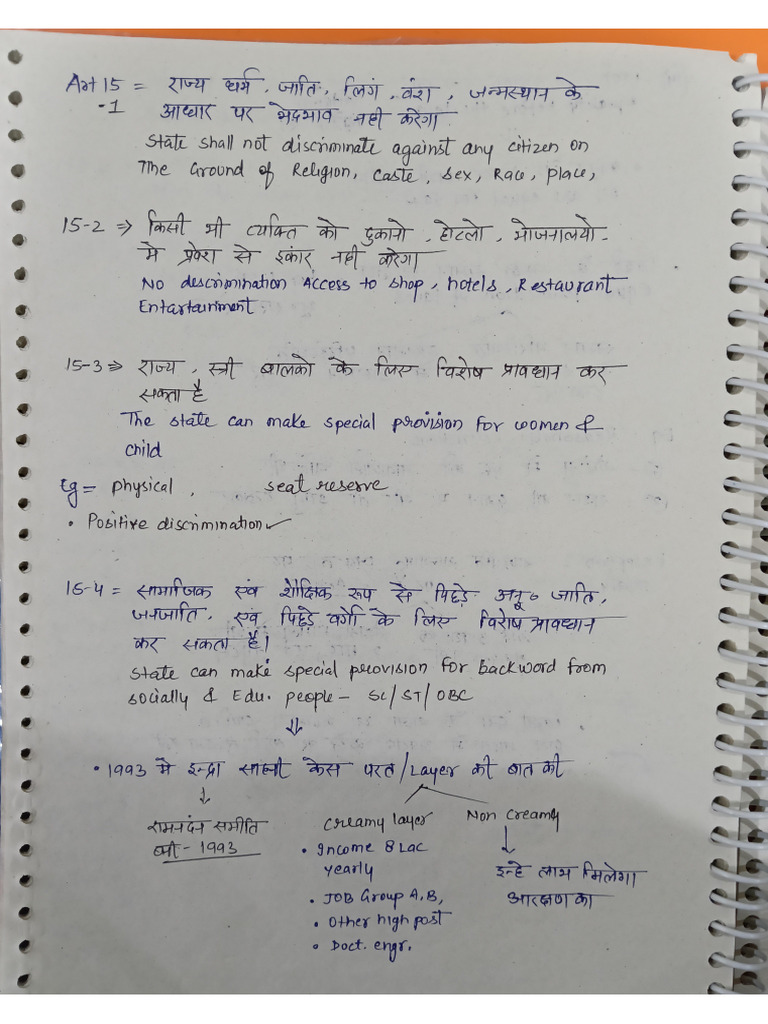 Art 15 = राज्य धर्म, जाति, लिगं, वंश, जन्मस्थान के
-1 आधार पर भेदभाव नही करेगा
State shall not discriminate against any citizen on
The Ground of Religion, caste, sex, Race, place,
15-2 ⇒ किसी भी व्यक्ति को दुकानो, होटलो, भोजनालयो
मे प्रवेश से इकांर नही करेगा
No descrimination Access to shop, hotels, Restaurant
Entartainment
15-3 ⇒ राज्य, स्त्री बालको के लिए विशेष प्रावधान कर
सकता है
The state can make special provision for women &
child
Eg = physical, seat reserve
• Positive discrimination ✓
15-4 = सामाजिक एवं शैक्षिक रूप से पिछड़े अनू० जाति,
जनजाति, एवं पिछड़े वर्गो के लिए विशेष प्रावधान
कर सकता है।
State can make special provision for backword from
socially & Edu. people - SC/ST/OBC
⇓
• 1993 मे इन्द्रा साहनी केस परत/Layer की बात की
↓
रामनदंन समीति
बनी - 1993
Creamy layer
• Income 8 Lac
yearly
• JOB Group A,B,
• Other high post
• Doct. engr.
Non Creamy
↓
इन्हे लाभ मिलेगा
आरक्षण का